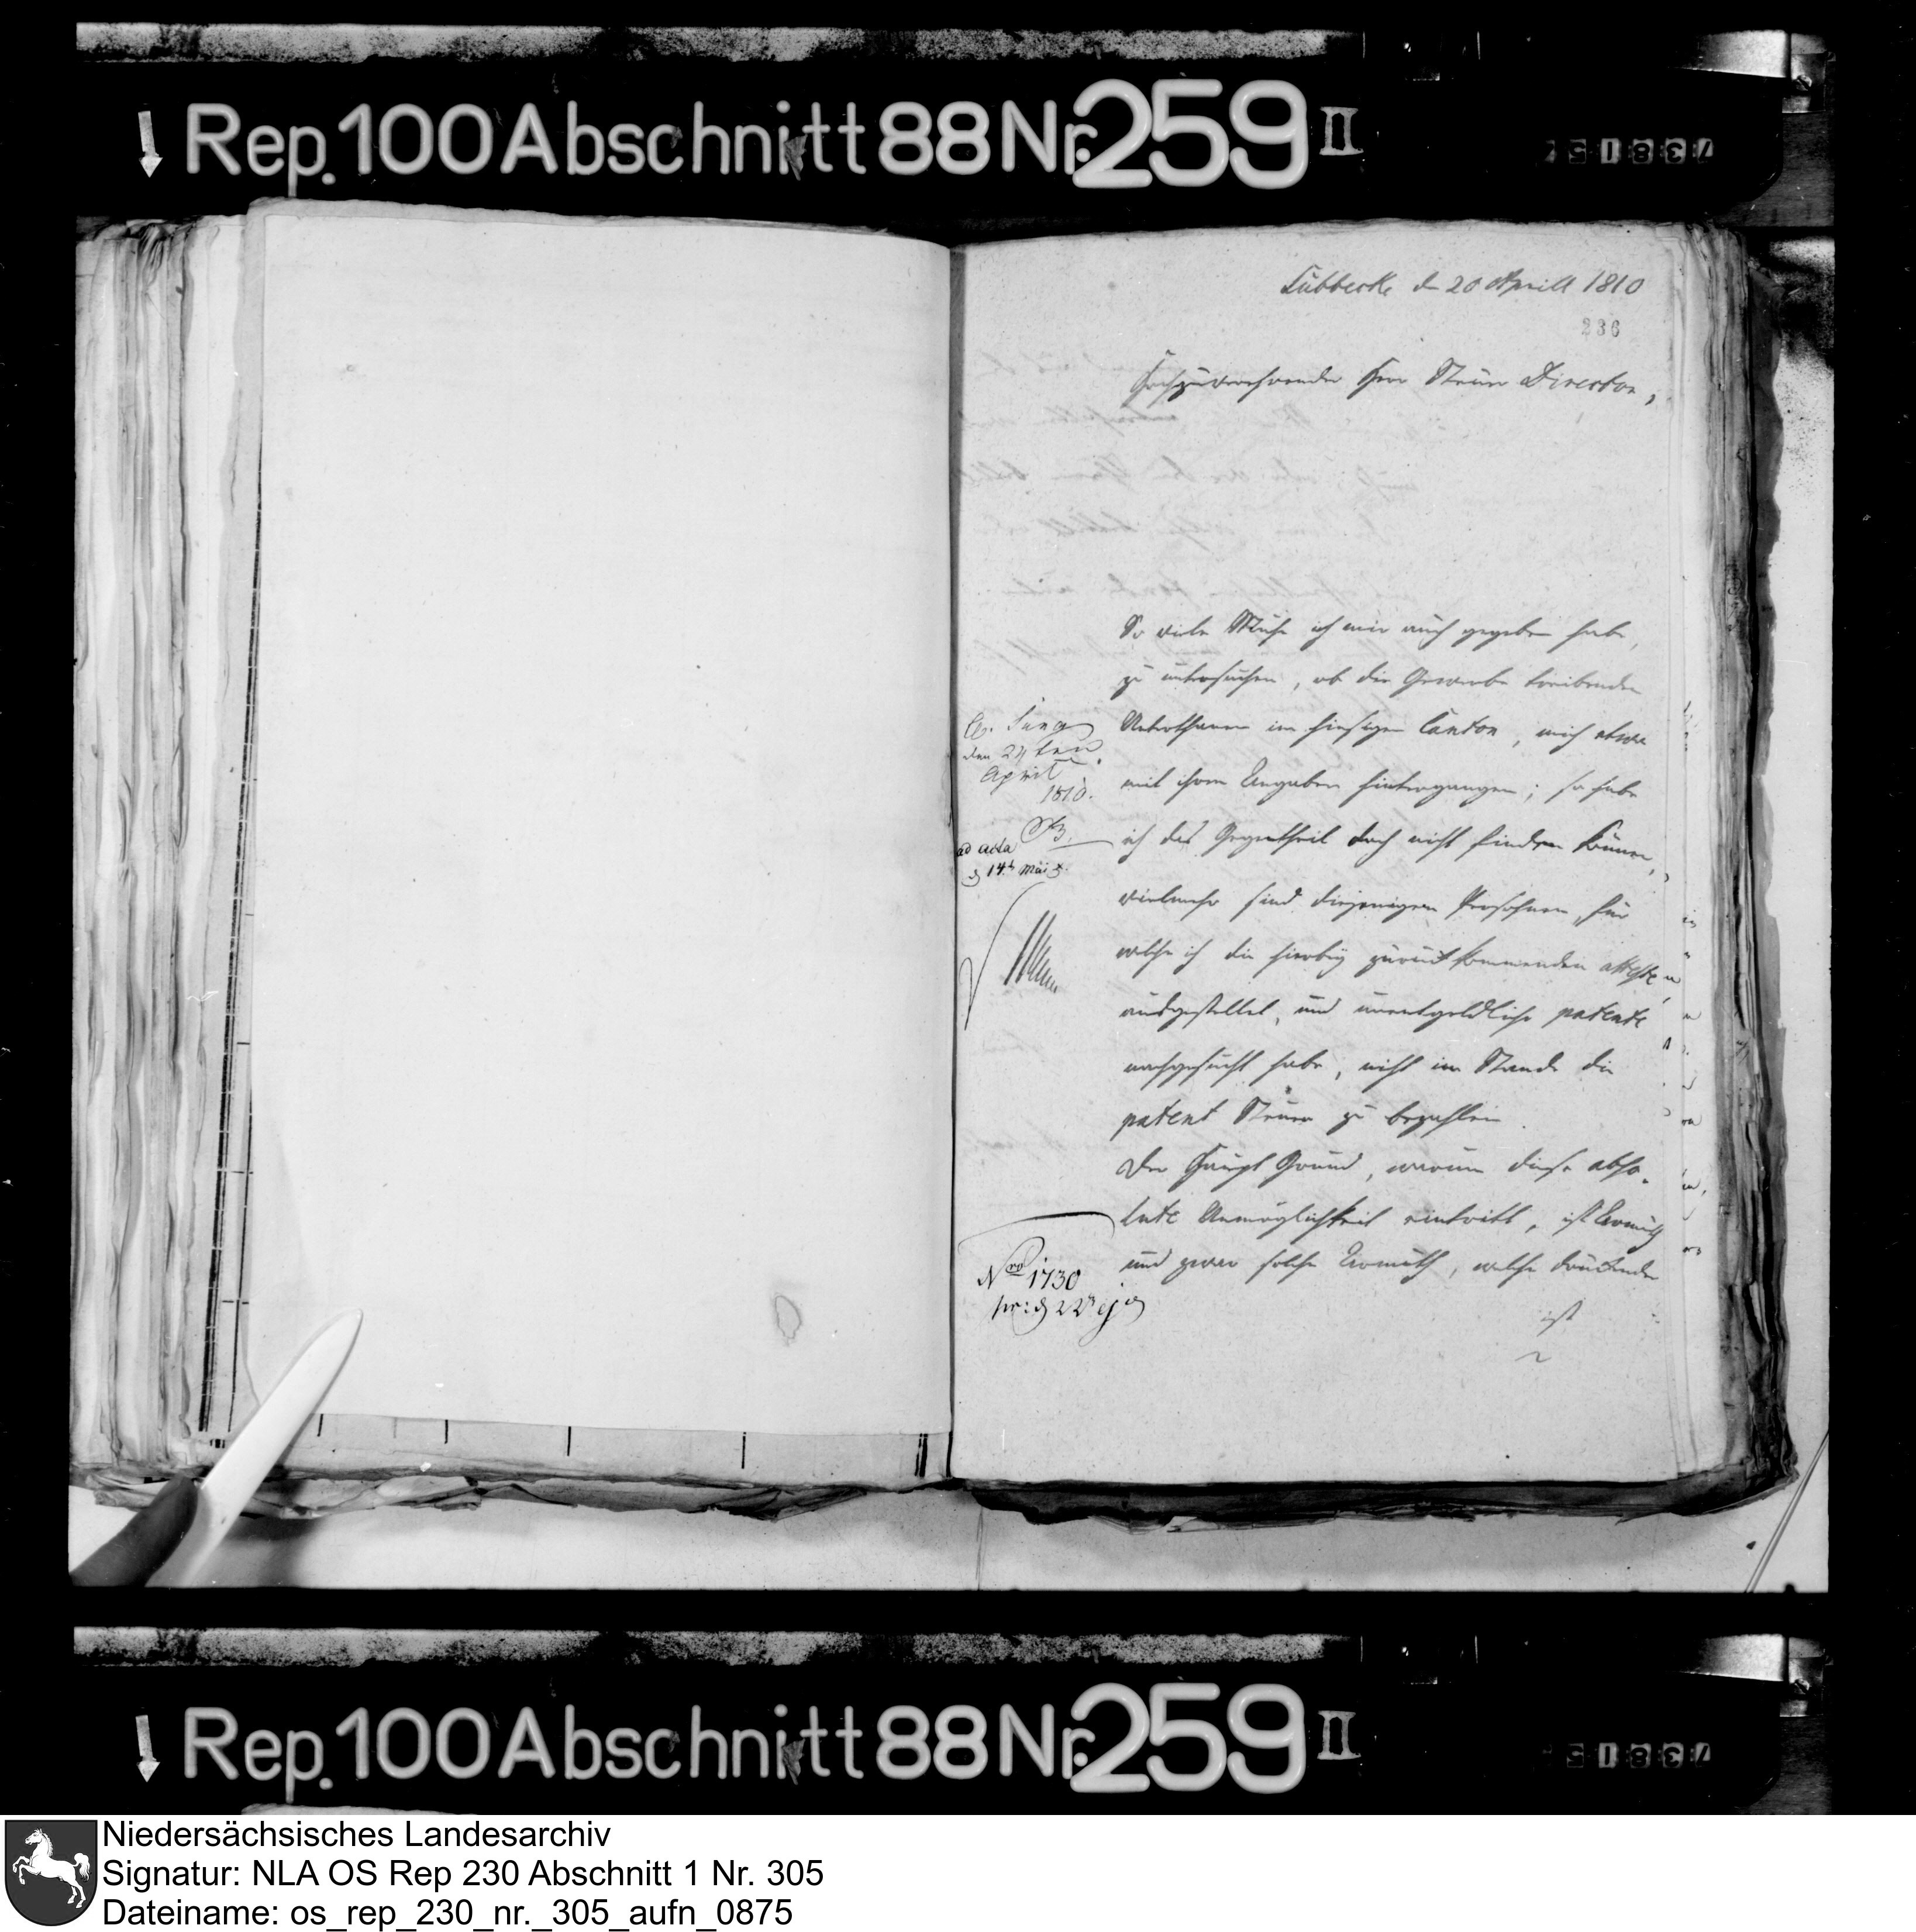 Rep. 100 Abschnitt 88 Nr. 259 II
73815
Lübbecke d 20 Aprill 1810
236
Hochzuverehrender Herr Steuer Director,
So viele Mühe ich mir auch gegeben habe,
zu untersuchen, ob die Gewerbe treibenden
Unterthanen im hiesigen Canton, mich etwa
mit ihren Angaben hintergangen; so habe
ich das Gegentheil doch nicht finden können,
vielmehr sind diejenigen Persohnen, für
welche ich die hierbey zurück kommenden atteste
ausgestellet, und unentgeldliche patente
nachgesucht habe, nicht im Stande die
patent Steuer zu bezahlen.
Der Haupt Grund, warum diese abso-
lute Unmöglichkeit eintritt, ist Armuth
und zwar solche Armuth, welche drückender
ist
den 24ten
April
1810.
ad acta
d 14t Mai
Nro 1730
pr: d 22t ej
Rep. 100 Abschnitt 88 Nr. 259 II
73815
Niedersächsisches Landesarchiv
Signatur: NLA OS Rep 230 Abschnitt 1 Nr. 305
Dateiname: os_rep_230_nr._305_aufn_0875